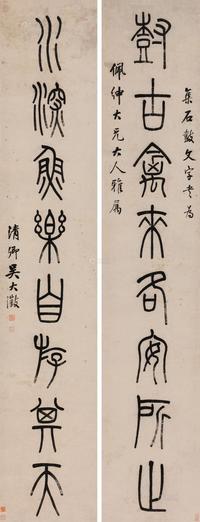 集石鼓文字書為
樹古禽來各安所止
佩紳大兄大人雅屬
水深魚樂自存其天
清卿吳大澂